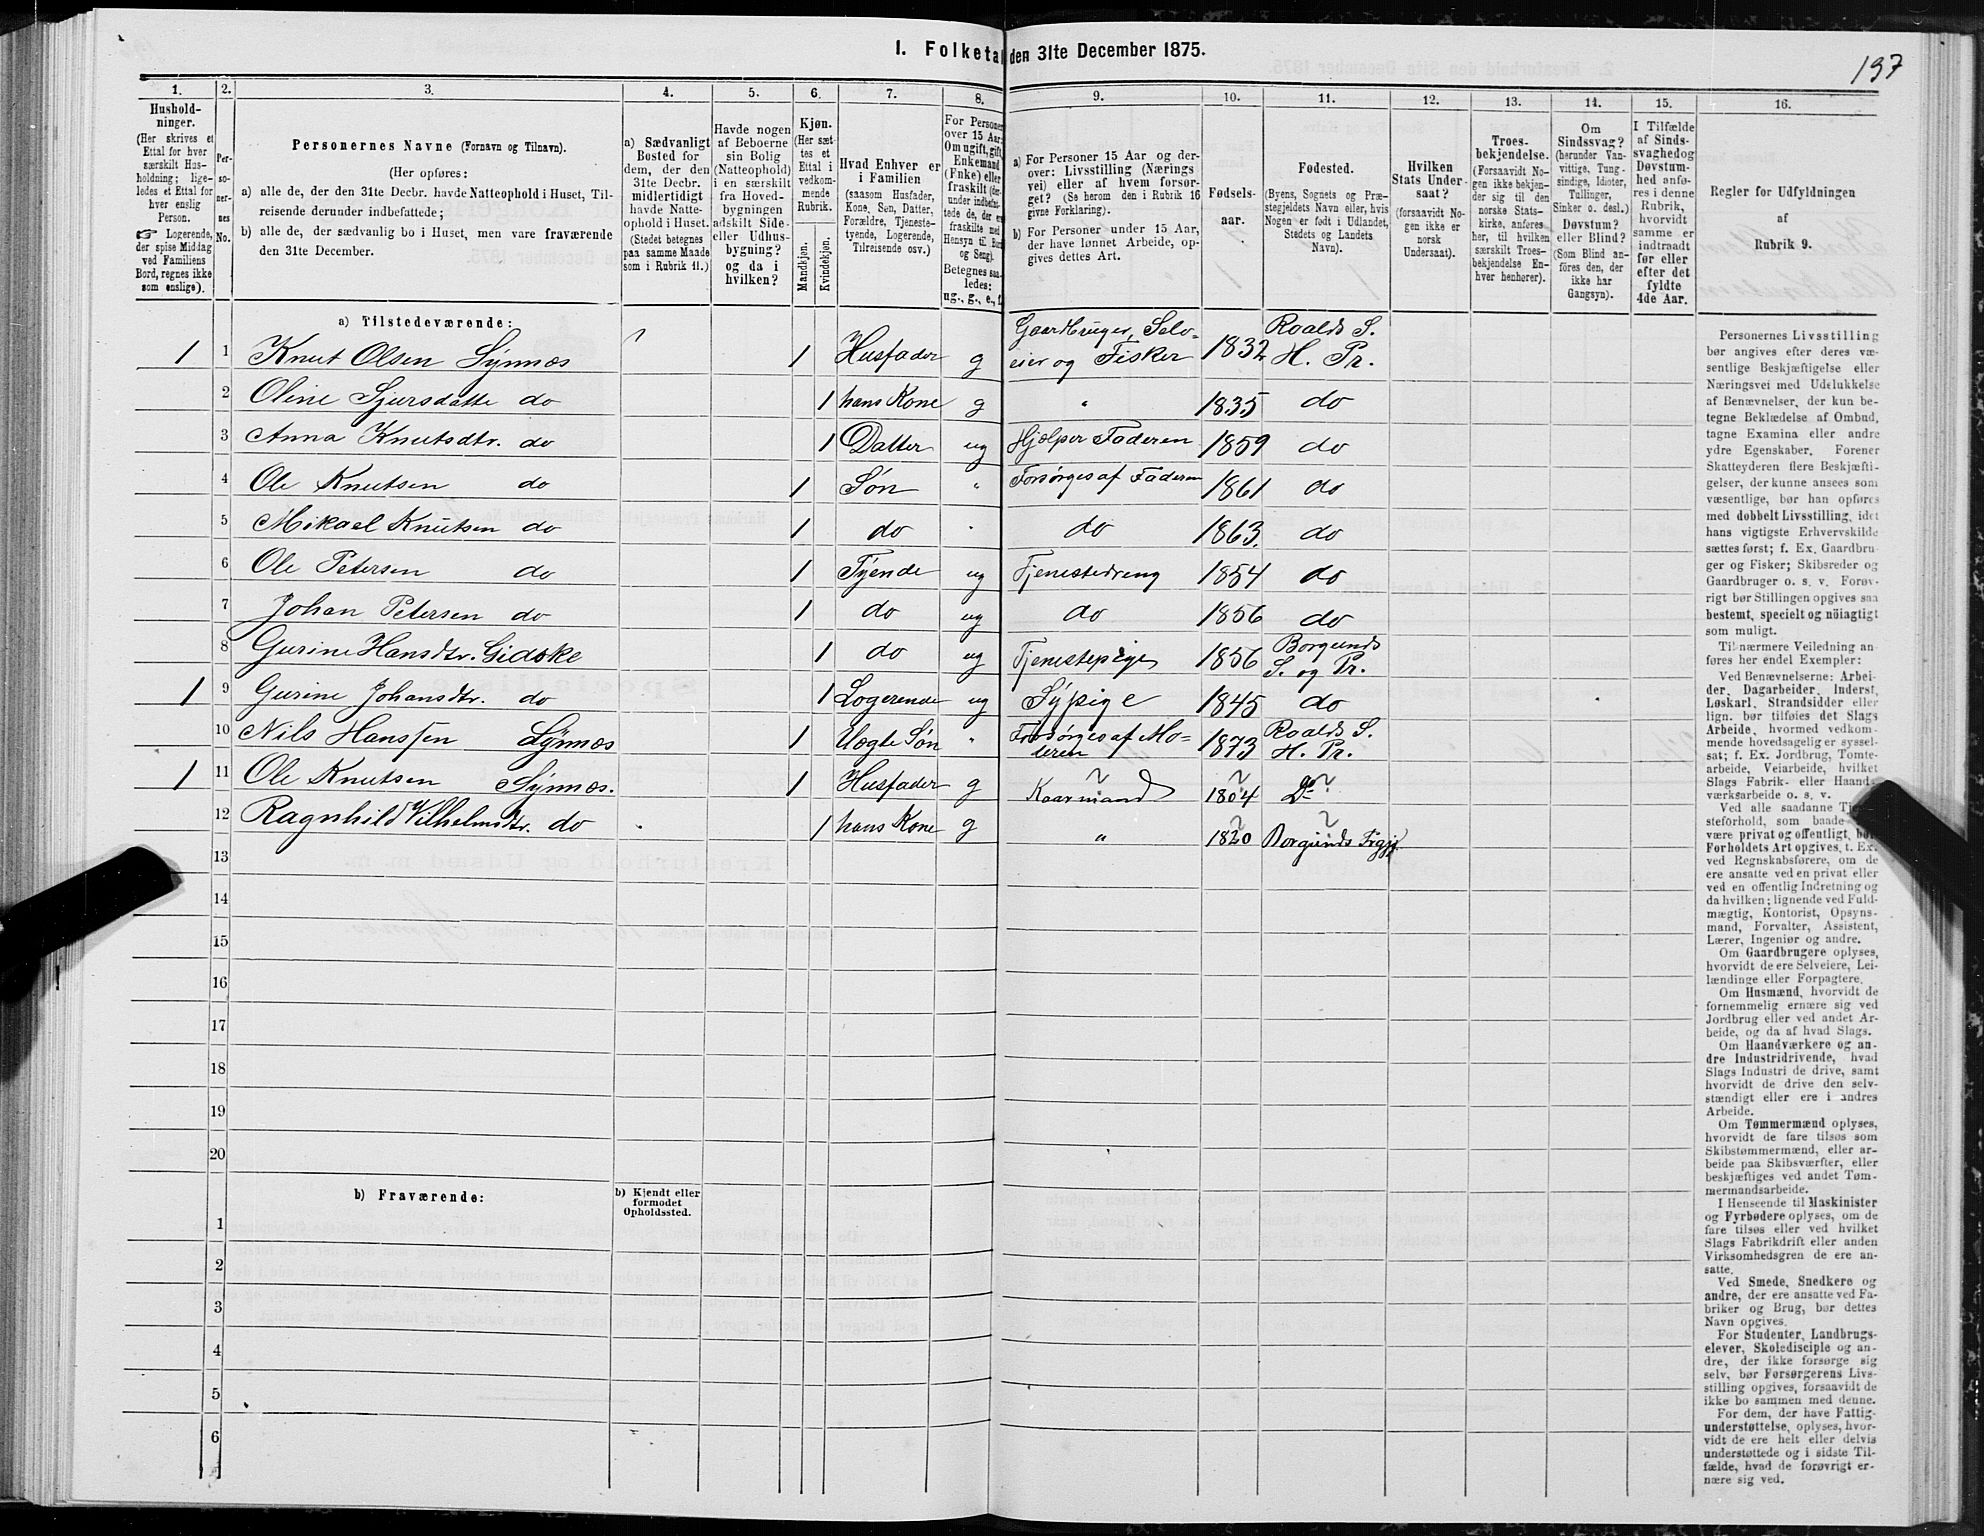 I. Folketa den 31te December 1875.
197
1. 2. 3. 4. 5. 6. 7. 8. 9. 10. 11. 12. 13. 14. 15. 16.
Hushold-
ninger.
(Her skrives et
Ettal for hver
særskilt Hus-
holdning; lige-
ledes et Ettal for
hver enslig
Person.
☞ Logerende,
der spise Middag
ved Familiens
Bord, regnes ikke
som enslige).
Per-
so-
ner-
nes
No.
Personernes Navne (Fornavn og Tilnavn).
(Her opføres:
a) alle de, der den 31te Decbr. havde Natteophold i Huset, Til-
reisende derunder indbefattede;
b) alle de, der sædvanlig bo i Huset, men vare fraværende
den 31te December.
a) Sædvanligt
Bosted for
dem, der den
31te Decbr.
midlertidigt
havde Natte-
ophold i Huset.
(Stedet betegnes
paa samme Maade
som i Rubrik 11.)
Havde nogen
af Beboerne
sin Bolig
(Natteophold)
i en særskilt
fra Hoved-
bygningen
adskilt Side-
eller Udhus-
bygning?
og da i
hvilken?
Kjøn.
(Her sæt-
tes et
Ettal i
vedkom-
mende
Rubrik.
Mandkjøn.
Kvindekjøn.
Hvad Enhver er
i Familien
(saasom Husfader,
Kone, Søn, Datter,
Forældre, Tjeneste-
tyende, Logerende,
Tilreisende
osv.)
For Personer
over 15 Aar:
Om ugift, gift,
Enkemand
(Enke) eller
fraskilt (der-
under indbefat-
tede de, der ere
fraskilte med
Hensyn til Bord
og Seng).
Betegnes saa-
ledes:
ug., g., e., f.
a) For Personer 15 Aar og der-
over: Livsstilling (Nærings
vei) eller af hvem forsør-
get? (Se herom den i Rubrik 16
givne Forklaring).
b) For Personer under 15 Aar,
der have lønnet Arbeide, op-
gives dettes Art.
Fødsels-
aar.
Fødested.
(Byens, Sognets og Præ-
stegjeldets Navn eller, hvis
Nogen er født i Udlandet,
Stedets og Landets
Navn).
Hvilken
Stats Under-
saat?
(forsaavidt No-
gen ikke er
norsk
Undersaat).
Troes-
bekjendelse.
(Forsaavidt No-
gen ikke bekjen-
der sig til den
norske Stats-
kirke, anføres
her, til hvilken
særskilt Troes-
bekjendelse En-
hver henhører).
Om
Sindssvag?
(herunder Van-
vittige, Tung-
sindige, Idioter,
Tullinger,
Sinker o. desl.)
Døvstum?
eller Blind?
(Som Blind an-
føres den, der
ikke har
Gangsyn).
I Tilfælde
af Sinds-
svaghed og
Døvstum-
hed anfø-
res i denne
Rubrik,
hvorvidt
samme er
indtraadt
før eller
efter det
fyldte
4de Aar.
Regler for Udfyldningen
af
Rubrik 9.
a) Tilstedeværende:
1 1 Knut Olsen Synnæs 1 Husfader g Gaardbruger, Selv=
eier og Fisker 1832 Roalds S.
H. Pr.
2 Oline Sjursdatte do 1 hans Kone g " 1835 do
3 Anna Knutsdtr. do 1 Datter ug Hjælper Faderen 1859 do
4 Ole Knutsen do 1 Søn " Forsørges af Faderen 1861 do
5 Mikael Knutsen do 1 do " do 1863. do
6 Ole Petersen do 1 Tyende ug Tjenestedreng 1854 do
7 Johan Petersen do 1 do ug do 1856 do
8 Gurine Hansdtr. Gidske 1 do ug Tjenestepige 1856 Borgunds
S. og Pr.
1 9 Gurine Johansdtr. do 1 Logerende ug Sypige 1845 do
10 Nils Hanssen Synnæs 1 Uægte Søn " Forsørges af Mo=
deren 1873 Roalds S.
H. Pr.
1 11 Ole Knutsen Synnæs. 1 Husfader g Kaarmand 1804 Do
12 Ragnhild Vilhelmsdtr. do 1 hans Kone g " 1820 Borgunds Prgj
13
14
15
16
17
18
19
20
b) Fraværende:
b) Kjendt eller
formodet
Opholdssted.
1
2
3
4
5
6
Personernes Livsstilling
bør angives efter deres væ-
sentlige Beskjæftigelse eller
Næringsvei med Udelukkelse
af Benævnelser, der kun be-
tegne Beklædelse af Ombud,
tagne Examina eller andre
ydre Egenskaber. Forener
Skatteyderen flere Beskjæfti-
gelser, der kunne ansees som
væsentlige, bør han opføres
med dobbelt Livsstilling, idet
hans vigtigste Erhvervskilde
sættes først; f. Ex. Gaardbru-
ger og Fisker; Skibsreder og
Gaardbruger o. s. v. Forøv-
rigt bør Stillingen opgives saa
bestemt, specielt og nöiagtigt
som muligt.
Til nærmere Veiledning an-
føres her endel Exempler:
Ved Benævnelserne: Arbei-
der, Dagarbeider, Inderst,
Løskarl, Strandsidder eller
lign. bør tilføies det Slags
Arbeide, hvormed vedkom-
mende hovedsagelig er syssel-
sat; f. Ex. Jordbrug, Tomte-
arbeide, Veiarbeide, hvilket
Slags Fabrik- eller Haand-
værksarbeide o. s. v.
Ved alle saadanne Tje
steforhold, som baade
være privat og offentligt, bør
Forholdets Art opgives, t. Ex.
ved Regnskabsførere, om de
ere ansatte ved en privat eller
ved en offentlig Indretning og
da hvilken; lignende ved Fuld-
mægtig, Kontorist, Opsyns-
mand, Forvalter, Assistent,
Lærer, Ingeniør og andre.
Om Gaardbrugere oplyses,
hvorvidt de ere Selveiere, Lei-
lændinge eller Forpagtere.
Om Husmænd, hvorvidt de
fornemmelig ernære sig ved
Jordbrug eller ved andet Ar-
beide, og da af hvad Slags.
Om Haandværkere og an-
dre Industridrivende, hvad
Slags Industri de drive, samt
hvorvidt de drive den selv-
stændigt eller ere i andres
Arbeide.
Om Tømmermænd oplyses,
hvorvidt de fare tilsøs som
Skibstømmermænd, eller ar-
beide paa Skibsværfter, eller
beskjæftiges ved andet Tøm-
mermandsarbeide.
I Henseende til Maskinister
og Fyrbødere oplyses, om de
fare tilsøs eller ved hvilket
Slags Fabrikdrift eller anden
Virksomhedsgren de ere an-
satte.
Ved Smede, Snedkere og
andre, der ere ansatte ved Fa-
briker og Brug, bør dettes
Navn opgives.
For Studenter, Landbrugs-
elever, Skoledisciple og an-
dre, der ikke forsørge sig
selv, bør Forsørgerens Livs-
stilling opgives, forsaavidt de
ikke bo sammen med denne.
For dem, der have Fattig-
understøttelse, oplyses, hvor-
vidt de ere helt eller delvis
understøttede og i sidste Til-
fælde, hvad de forøvrigt er-
nære sig ved.